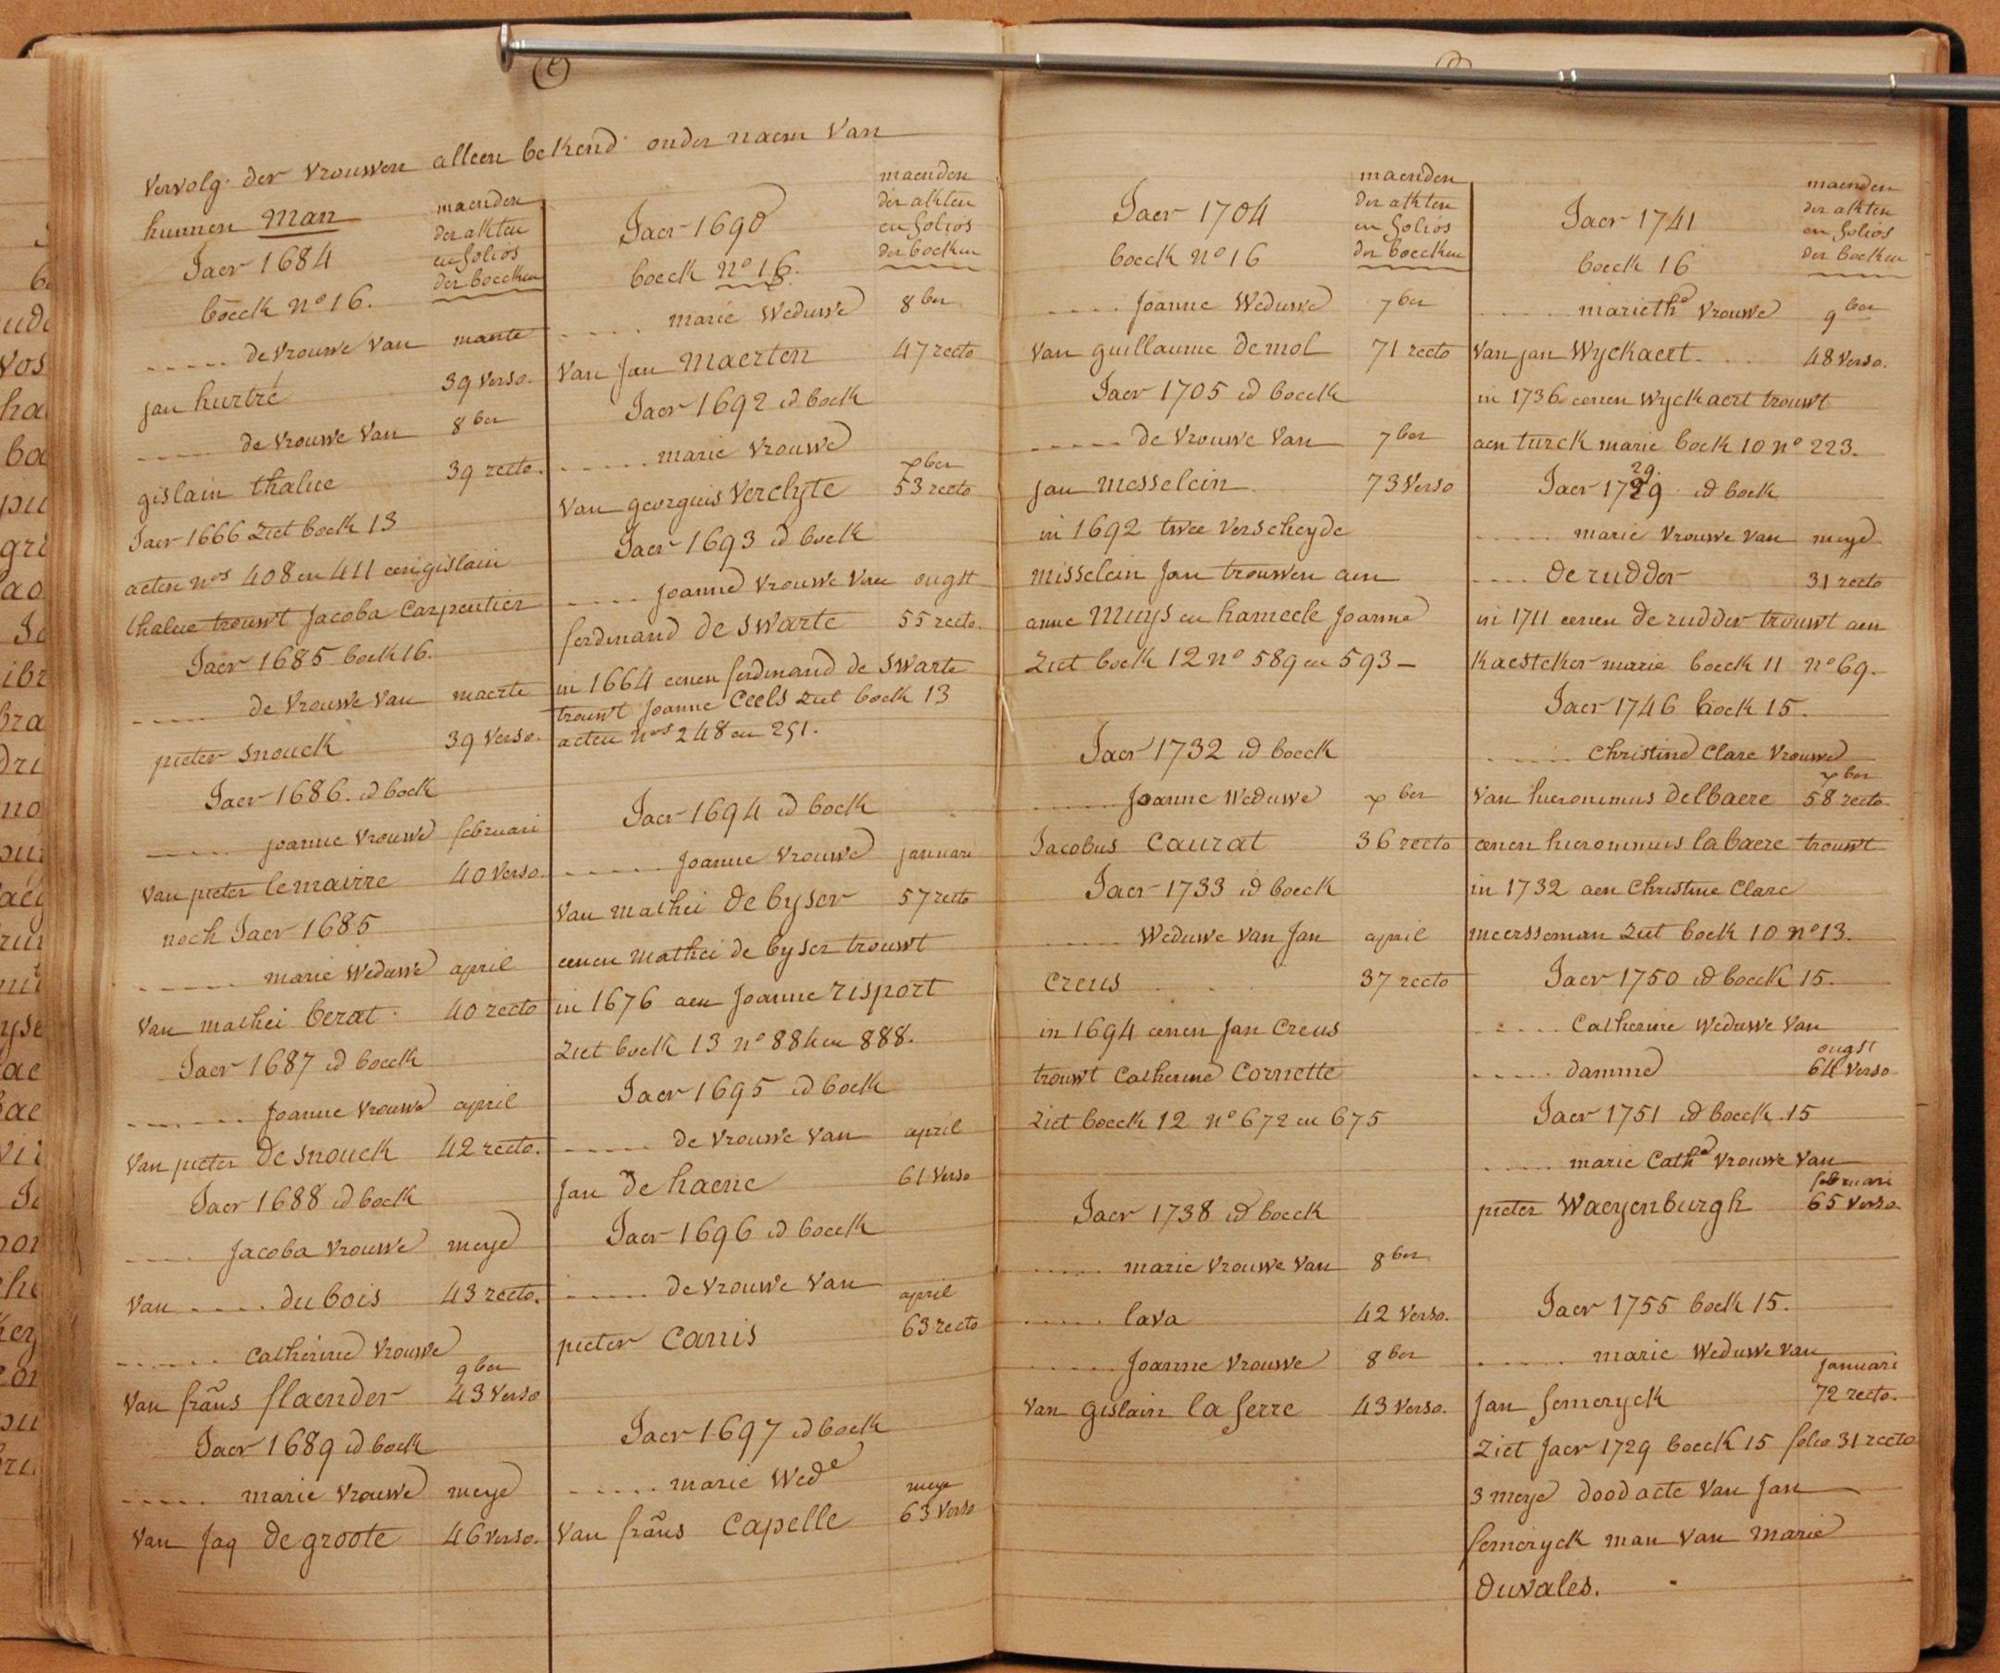 Vervolg der vrouwen alleen bekend onder naem van
hunnen man
maenden
der akten
en folios
der boecken
Jaer 1684
boeck n° 16.
..... de vrouwe van maerte
jan hurtré 39 verso.
..... de vrouwe van 8ber
gislain thalue 39 recto.
Jaer 1666 ziet boek 13
acten nos 408 en 411 een gislain
thalue trouwt Jacoba Carpentier
Jaer 1685 boek 16.
..... de vrouwe van maerte
pieter snouck 39 verso.
Jaer 1686 id boek
..... joanne vrouwe februari
van pieter lemairre 40 verso.
noch Jaer 1685
..... marie weduwe april
van mathei berat 40 recto
Jaer 1687 id boeck
..... Joanne vrouwe april
van pieter de snouck 42 recto.
Jaer 1688 id boek
..... Jacoba vrouwe meye
van ..... du bois 43 recto.
..... Catherine vrouwe
9ber
van frans flaender 43 verso
Jaer 1689 id boek
..... marie vrouwe meye
van Jaq de groote 46 verso.
maenden
der akten
en folios
der boecken
Jaer 1690
boeck n° 16.
..... marie weduwe 8ber
van Jan maerten 47 recto
Jaer 1692 id boek
..... marie vrouwe
xber
van georguis verclyte 53 recto
Jaer 1693 id boek
..... joanne vrouwe van ougst
ferdinand de swarte 55 recto.
in 1664 eenen ferdinand de swarte
trouwt joanne Ceels ziet boek 13
acten nos 248 en 251.
Jaer 1694 id boek
..... joanne vrouwe januari
van mathei de byser 57 recto
eenen mathei de byser trouwt
in 1676 aen joanne risport
ziet boek 13 n° 884 en 888.
Jaer 1695 id boek
..... de vrouwe van april
jan de haene 61 verso
Jaer 1696 id boeck
..... de vrouwe van april
pieter Canis 63 recto
Jaer 1697 id boek
..... marie wede
meye
van frans Capelle 63 verso
maenden
der akten
en folios
der boecken
Jaer 1704
boeck n° 16
..... Joanne weduwe 7ber
van guillaume de mol 71 recto
Jaer 1705 id boeck
..... de vrouwe van 7ber
jan messelein 73 verso
in 1692 twee verscheyde
misselein jan trouwen aen
anne muys en hameele joanne
ziet boek 12 n° 589 en 593 -
Jaer 1732 id boeck
..... Joanne weduwe xber
Jacobus Caurat 36 recto
Jaer 1733 id boeck
..... weduwe van jan april
creus 37 recto
in 1694 eenen jan creus
trouwt Catherine Cornette
ziet boeck 12 n° 672 en 675
Jaer 1738 id boeck
..... marie vrouwe van 8ber
..... lava 42 verso.
..... Joanne vrouwe 8ber
van gislain la ferre 43 verso.
maenden
der akten
en folios
der boeken
Jaer 1741
boeck 16
..... marie the vrouwe 9ber
van jan wyckaert 48 verso.
in 1736 eenen wyckaert trouwt
aen turck marie boek 10 n° 223.
29.
Jaer 1729 id boek
..... marie vrouwe van meye
..... de rudder 31 recto
in 1711 eenen de rudder trouwt aen
kaesteker marie boeck 11 n° 69.
Jaer 1746 boek 15.
..... Christine Clare vrouwe
xber
van hieronimus delbaere 58 recto
eenen hieronimus labaere trouwt
in 1732 aen Christine Clare
meersseman ziet boek 10 n° 13.
Jaer 1750 id boeck 15.
..... Catherine weduwe van
ougst
..... damme 64 verso
Jaer 1751 id boeck 15
..... marie Cathe vrouwe van
februari
pieter waeyenburgh 65 verso.
Jaer 1755 boek 15.
..... marie weduwe van
januari
jan femeryck 72 recto.
ziet jaer 1729 boeck 15 folio 31 recto
3 meye doodacte van jan
femeryck man van marie
duvales.